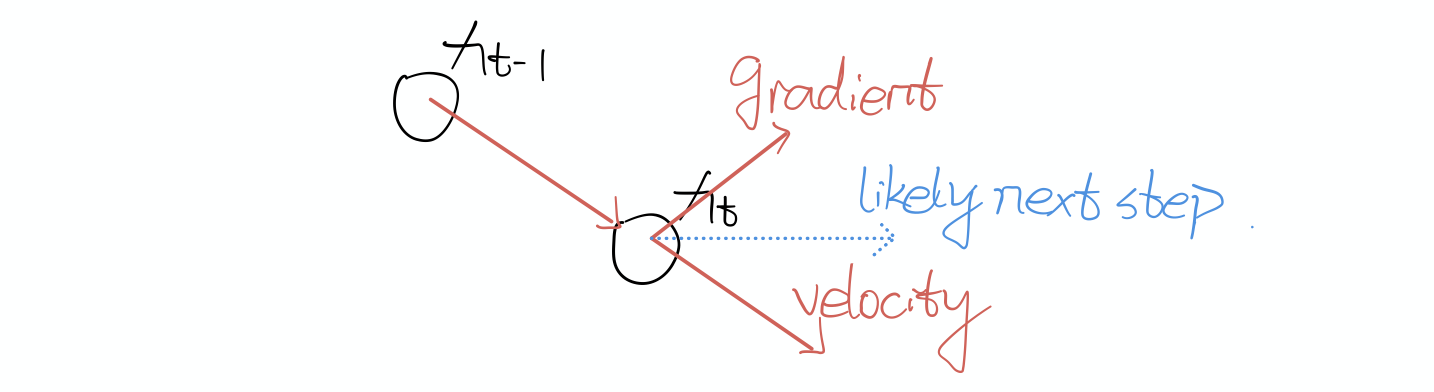 x_{t-1}
gradient
x_t
likely next step.
velocity